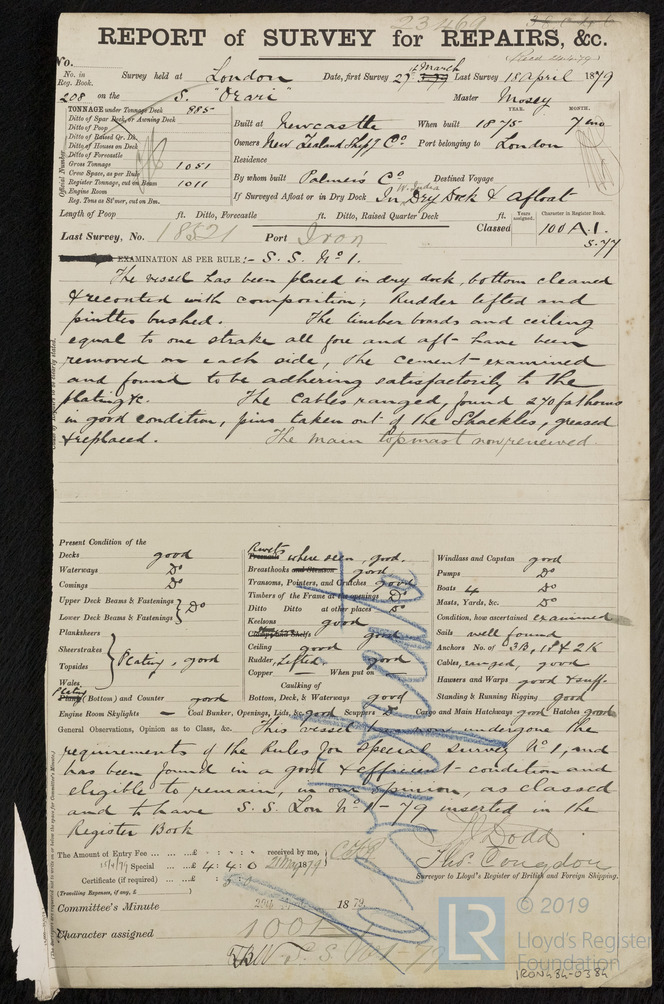 23469
REPORT of SURVEY for REPAIRS, &c.
No.
No. in Reg. Book.
Survey held at London Date, first Survey 27th March Last Survey 18 April 1879
208 on the S. "Orari" Master Mosey
TONNAGE under Tonnage Deck 885
Ditto of Spar Deck, or Awning Deck
Ditto of Poop
Ditto of Raised Qr. Dk.
Ditto of Houses on Deck
Ditto of Forecastle
Gross Tonnage 1051
Crew Space, as per Rule
Register Tonnage, cut on Beam 1011
Engine Room
Reg. Tons as St'mer, cut on Bm.
Official Number
YEAR. MONTH.
Built at Newcastle When built 1875 7 mo
Owners New Zealand Shipg Co Port belonging to London
Residence
By whom built Palmers Co Destined Voyage
If Surveyed Afloat or in Dry Dock In W. India Dry Dock & afloat
Length of Poop ft. Ditto, Forecastle ft. Ditto, Raised Quarter Deck ft.
Classed Years assigned. Character in Register Book. 100 A.1. 5.77
Last Survey, No. 18321 Port Iron
EXAMINATION AS PER RULE:- S. S. No 1.
The vessel has been placed in dry dock, bottom cleaned
& recoated with composition; Rudder lifted and
pintles bushed. The limber boards and ceiling
equal to one strake all fore and aft have been
removed on each side, the cement examined
and found to be adhering satisfactorily to the
plating &c. The Cables ranged, found 270 fathoms
in good condition, pins taken out of the Shackles, greased
& replaced. The main topmast now renewed.
Present Condition of the
Decks good
Waterways Do
Comings Do
Upper Deck Beams & Fastenings
Lower Deck Beams & Fastenings } Do
Planksheers
Sheerstrakes
Topsides
Wales } Plating, good
Plating (Bottom) and Counter good
Rivets where seen, good.
Breasthooks and Stemson good
Transoms, Pointers, and Crutches good
Timbers of the Frame at the openings Do
Ditto Ditto at other places Do
Keelsons good
Clamps and Shelfs good
Ceiling good
Rudder, Lifted good
Copper — When put on
Caulking of Bottom, Deck, & Waterways good
Windlass and Capstan good
Pumps Do
Boats 4 Do
Masts, Yards, &c. Do
Condition, how ascertained examined
Sails well found
Anchors No. of 3B, 1S & 2K
Cables, ranged, good
Hausers and Warps good & suff.
Standing & Running Rigging good
Engine Room Skylights — Coal Bunker, Openings, Lids, &c. good Scuppers Do Cargo and Main Hatchways good Hatches good
General Observations, Opinion as to Class, &c. This vessel has now undergone the
requirements of the Rules for Special survey No 1, and
has been found in a good & efficient condition and
eligible to remain, in our opinion, as classed
and to have S. S. Lon No 1-79 inserted in the
Register Book
The Amount of Entry Fee ... ... £ : : received by me,
Special ... £ 4 : 4 : 0 21 May 1879
Certificate (if required) ... £
(Travelling Expenses, if any, £ )
J. Dodd
Thos. Congdon
Surveyor to Lloyd's Register of British and Foreign Shipping.
Committee's Minute 1879.
Character assigned 100 A 1
S. S. No 1-79
© 2019
LR
Lloyd's Register Foundation
IRON484-0384